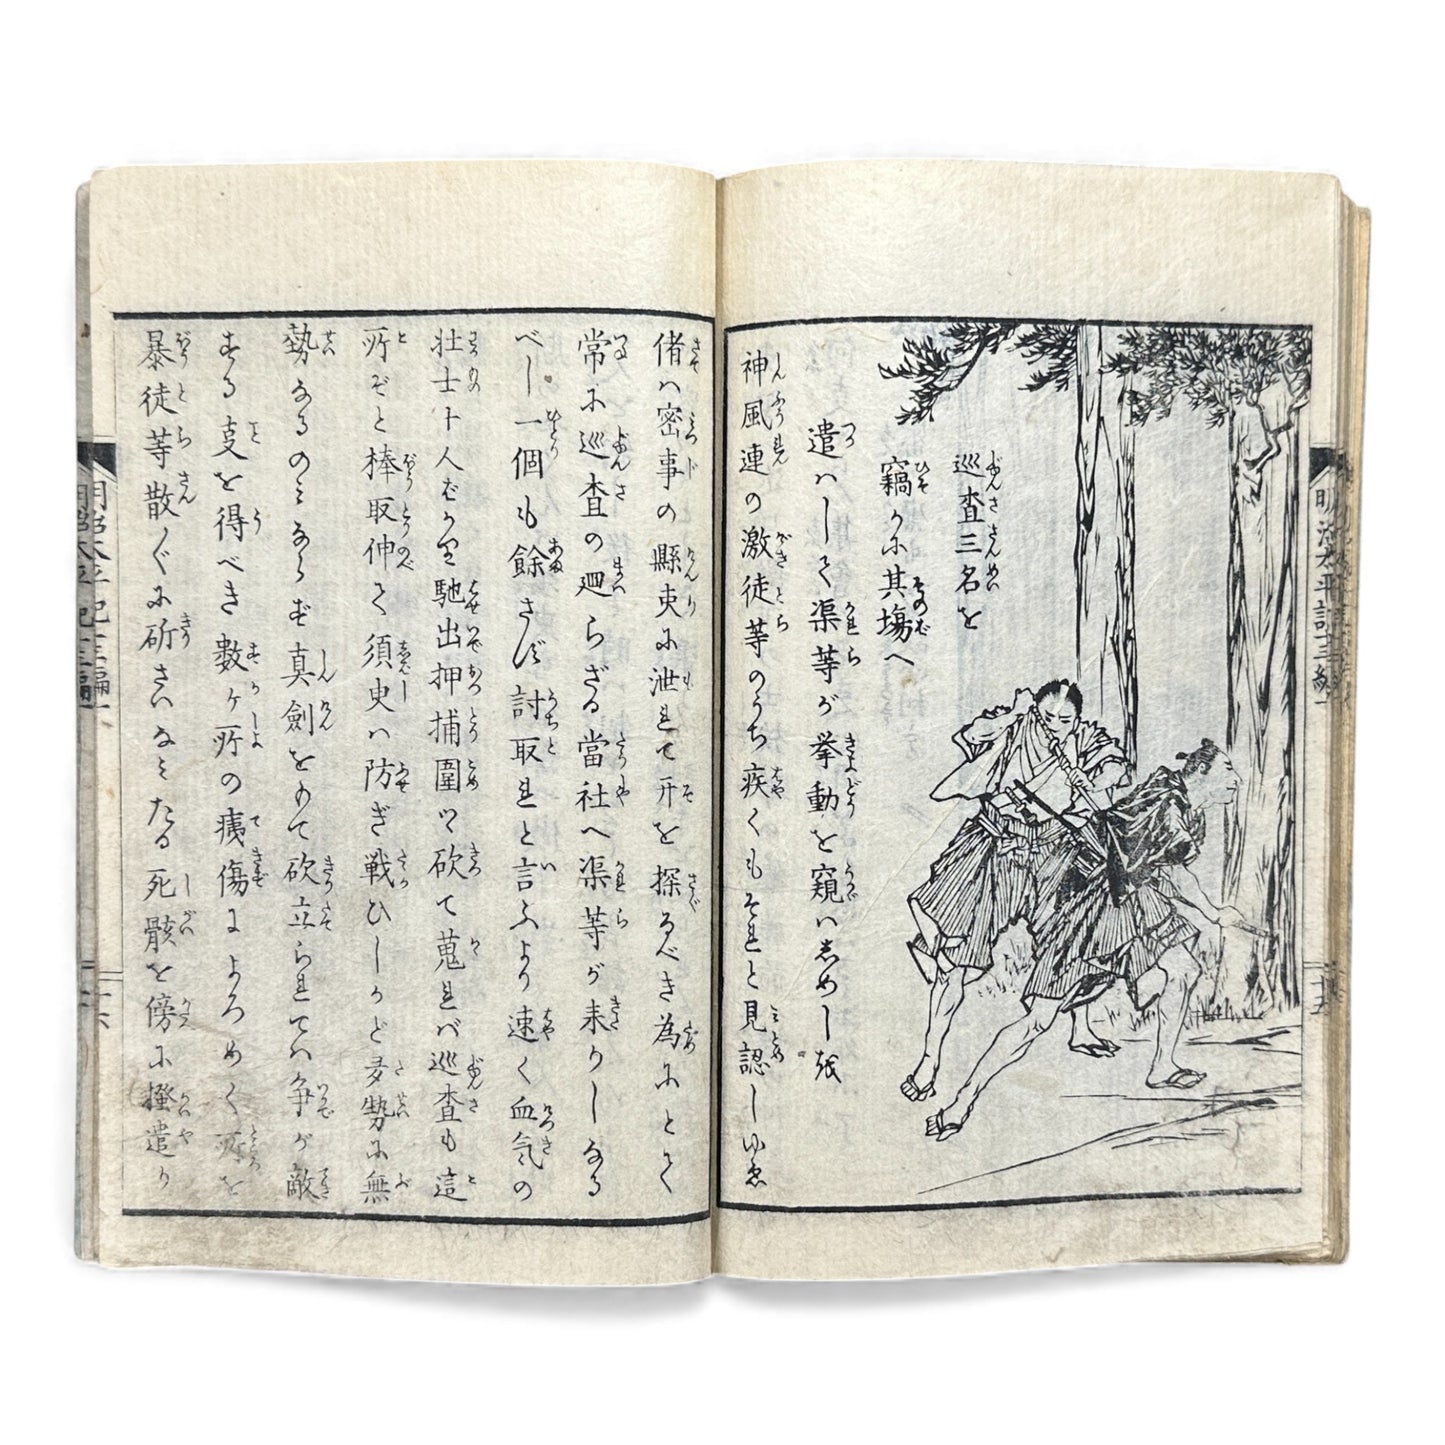 明治太平記十三編
巡査三名を
竊かに其塲へ
遣はして渠等が挙動を窺はしめしに
神風連の激徒等のうち疾くもそれと見認しゆゑ
偖は密事の縣吏に泄れて开を探るべき為にとて
常に巡査の廻らざる當社へ渠等が来りしなる
べし一個も餘さず討取れと言ふより速く血気の
壮士十人ばかり馳出押捕圍つ砍て蒐れば巡査も這
所ぞと棒取伸て須臾は防ぎ戦ひしかど多勢に無
勢なるのみならず真劍をもて砍立られては争が敵
する叓を得べき數ヶ所の痍傷によろめく所を
暴徒等散々に斫さいなみたる死骸を傍に掻遣り
明治太平記十三編